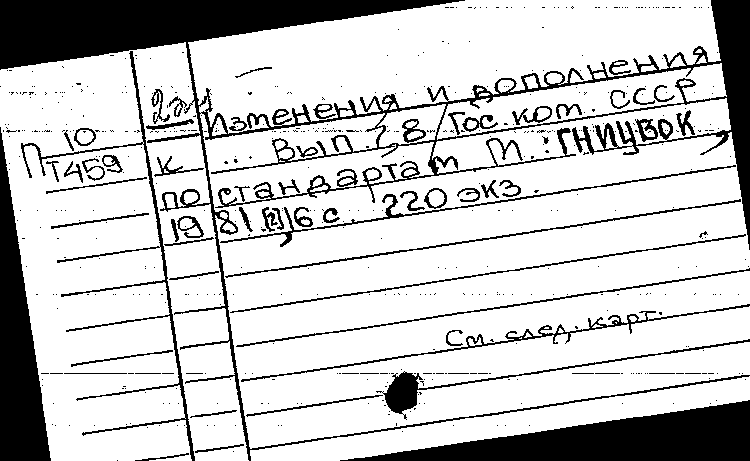 2эл
Изменения и дополнения
П 10
Т459
к ... Вып. 28 / Гос. ком. СССР
по стандартам М.: ГНИЦВОК,
1981, [2], 16 с. 220 экз.
См. след. карт.